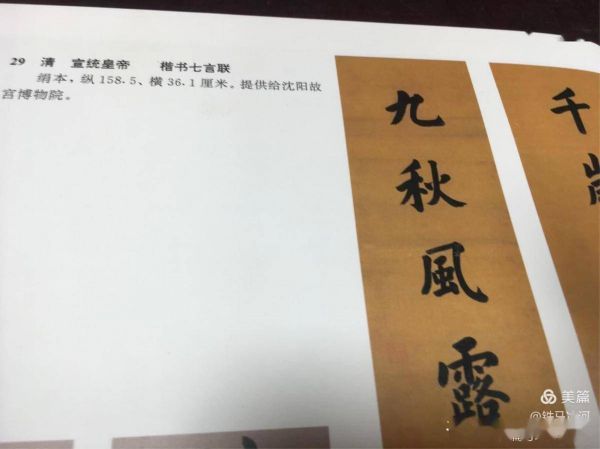 29 清 宣统皇帝 楷书七言联
绢本，纵158.5、横36.1厘米。提供给沈阳故
宫博物院。
千
九秋風露
美篇